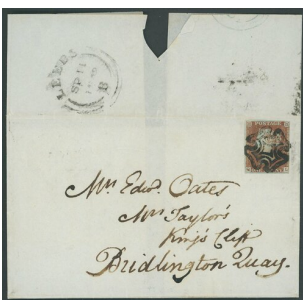 LEEDS
SP 11
B
POSTAGE
Mr. Edwd. Oates
Mrs Taylor's
King's Cliff
Bridlington Quay.